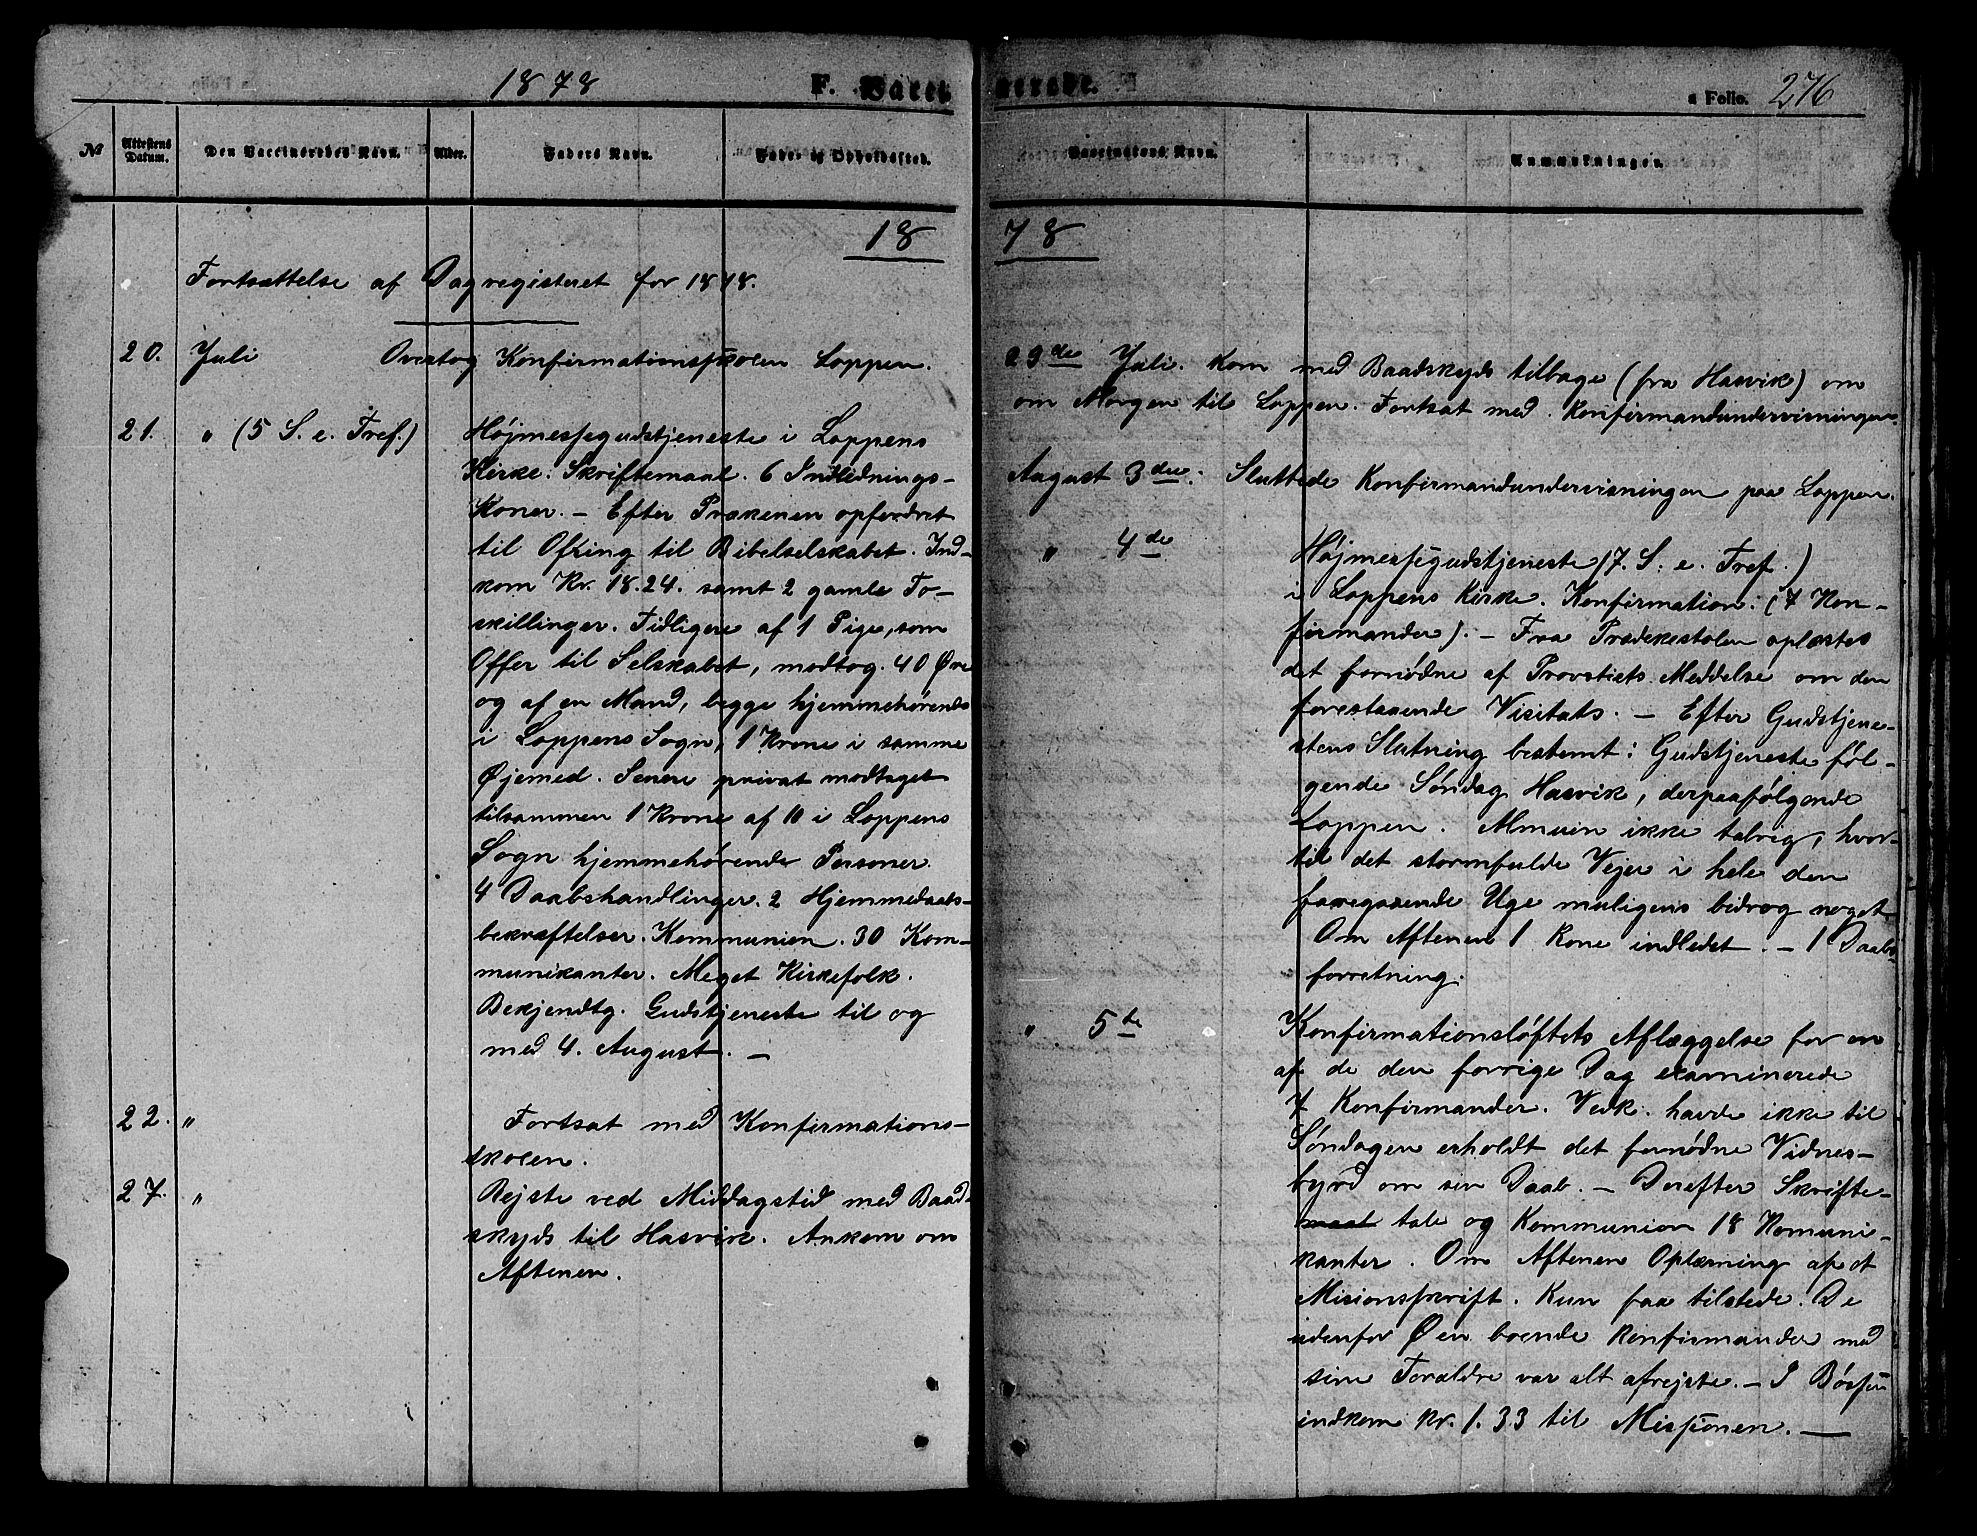 1878 F. Vacci
№
Attestens Datum.
Den Vaccineredes Navn.
Alder.
Faders Navn.
Fader og Opholdssted.
18
Fortsættelse af Dagregisteret for 1878.
20. Juli Overtog Konfirmationsskolen Loppen.
21. " (5 S. e. Tref.) Højmessegudstjeneste i Loppens
Kirke. Skriftemaal. 6 Indlednings-
Koner. – Efter Prækenen opfordret
til Ofring til Bibelselskabet. Ind-
kom Kr. 18.24. samt 2 gamle To-
skillinger. Tidligere af 1 Pige, som
Offer til Selskabet, modtog 40 Øre
og af en Mand, begge hjemmehørende
i Loppens Sogn, 1 Krone i samme
Øjemed. Senere privat modtaget
tilsammen 1 Krone af 10 i Loppens
Sogn hjemmehørende Personer.
4 Daabshandlinger. 2 Hjemmedaabs-
bekræftelser. Kommunion. 30 Kom-
munikanter. Meget Kirkefolk.
Bekjendtg. Gudstjeneste til og
med 4. August. –
22. " Fortsat med Konfirmations-
skolen.
27. " Rejste ved Middagstid med Baad-
skyds til Hasvik. Ankom om
Aftenen.
nerede.
a Folio. 276
Vaccinatens Navn.
Anmærkninger.
78
29de Juli. Kom med Baadskyds tilbage (fra Hasvik) om
om Morgen til Loppen. Fortsat med Konfirmandundervisningen.
August 3die. Sluttede Konfirmandundervisningen paa Loppen.
" 4de Højmessegudstjeneste (7. S. e. Tref.)
i Loppens Kirke. Konfirmation. (7 Kon-
firmander). – Fra Prædekestolen oplæstes
det fornødne af Provstiets Meddelse om den
forestaaende Visitats. – Efter Gudstjene-
stens Slutning bestemt: Gudstjeneste føl-
gende Søndag Hasvik, derpaafølgende
Loppen. Almuen ikke talrig, hvor-
til det stormfulde Vejer i hele den
foregaaende Uge muligens bidrog noget.
Om Aftenen 1 Kone indledet. – 1 Daabs-
forretning.
" 5te Konfirmationsløftets Aflæggelse for en
af de den forrige Dag examinerede
7 Konfirmander. Vedk. havde ikke til
Søndagen erholdt det fornødne Vidnes-
byrd om sin Daab. – Derefter Skrifte-
maal tale og Kommunion 18 Komuni-
kanter. Om Aftenen Oplæsning af et
Misionsskrift. Kun faa tilstede. De
udenfor Øen boende Konfirmander med
sine Forældre var alt afrejste. – I Bøssen
indkom Kr. 1.33 til Missionen. –